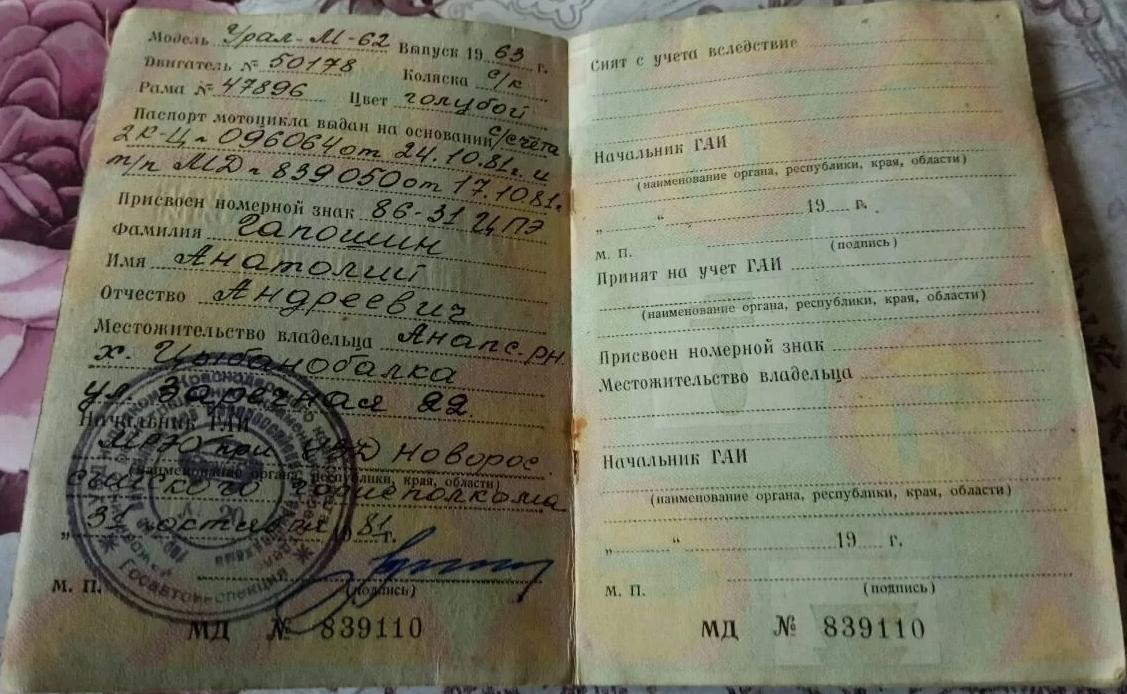 Модель Урал-М-62 Выпуск 1963 г.
Двигатель № 50178 Коляска с/к
Рама № 47896 Цвет голубой
Паспорт мотоцикла выдан на основании с/счёта
2К-Ц № 096064 от 24.10.81г. и
т/п МД № 839050 от 17.10.81г.
Присвоен номерной знак 86-31 ЦПЭ
Фамилия Гапошин
Имя Анатолий
Отчество Андреевич
Местожительство владельца Анапс. рн.
х. Цыбанобалка
ул. Заречная 22.
Начальник ГАИ
МРЭО при УВД Новорос
(наименование органа, республики, края, области)
сийского горисполкома
„31" октября 1981г.
(подпись)
М. П.
МД № 839110
Снят с учета вследствие
Начальник ГАИ
(наименование органа, республики, края, области)
„ " 19 г.
М. П. (подпись)
Принят на учет ГАИ
(наименование органа, республики, края, области)
Присвоен номерной знак
Местожительство владельца
Начальник ГАИ
(наименование органа, республики, края, области)
„ " 19 г.
М. П. (подпись)
МД № 839110